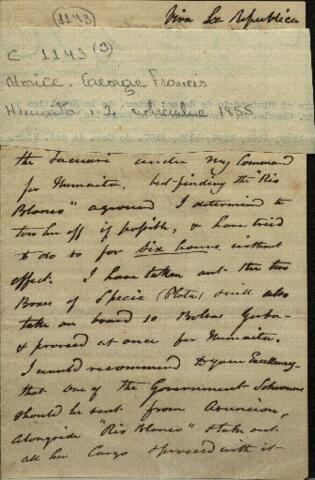 1143
Viva La Republica
C 1143 (3)
Morice. George Francis
Humaitá 12 noviembre 1855
the Tacuari under my Command
for Humaita, but finding the "Rio
Blanco" aground I determined to
tow her off if possible, & have tried
to do so for Six hours without
effect. I have taken out the two
Boxes of Specie (Plata) & will also
take on board 10 Bolsas Yerba
& proceed at once for Humaita.
I would recommend to your Excellency
that one of the Government Schooners
should be sent from Asuncion,
alongside "Rio Blanco" & take out
all her Cargo & proceed with it